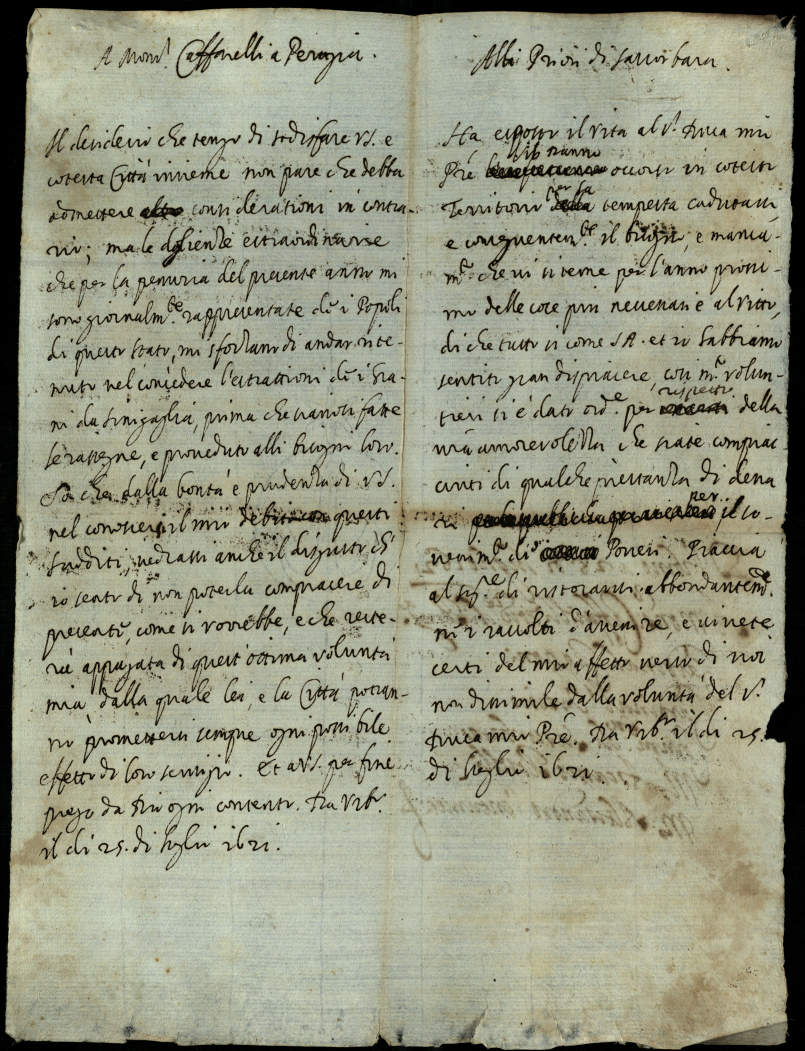 A Mons.r Caffarelli a Perugia.
Il desiderio che tengo di sodisfare V.S. e
cotesta Città insieme non pare che debba
ammettere considerationi in contra-
rio; ma le doglienze estraordinarie
che per la penuria del presente anno mi
sono giornalm.te rappresentate da i Popoli
di questo stato, mi sforzano di andar rite-
nuto nel concedere l'estrattioni de i Gra-
ni da Sinigaglia, prima che siano fatte
le rassegne, e proveduto alli bisogni loro.
So che dalla bontà e prudenza di V.S.
nel conoscersi il mio debito con questi
sudditi, vedrassi anche il disgusto ch'
io sento di non poterla compiacere di
presente, come si vorrebbe, e che reste-
rà appagata di quest'ottima voluntà
mia, dalla quale lei, e la Città potran-
no promettersi sempre ogni possibile
effetto di loro servigio. Et a V.S. per fine
prego da Dio ogni contento. Da Urb.o
il di 25. di luglio 1621.
Alli Priori di Sassorbara.
Ha esposto il Vita al S.r Duca mio
Pre il danno occorso in cotesto
Territorio per la tempesta cadutavi,
e conseguentem.te il bisogno, e manca-
m.to che vi si teme per l'anno prossi-
mo delle cose più necessarie al vitto,
di che tutto si come S.A. et io habbiamo
sentito gran dispiacere, così m.to volun-
tieri si è dato ord.e per rispetto della
vostra amorevolezza che siate compiac-
ciuti di qualche prestanza di dena
ri per il so-
venim.to di Poveri. Piaccia
al Sig.re di ristorarvi abbondantem.te
ne i raccolti d'avenire, e vivete
certi del mio affetto verso di voi
non dissimile dalla voluntà del S.r
Duca mio Pre. Da Urb.o il di 25.
di luglio 1621.